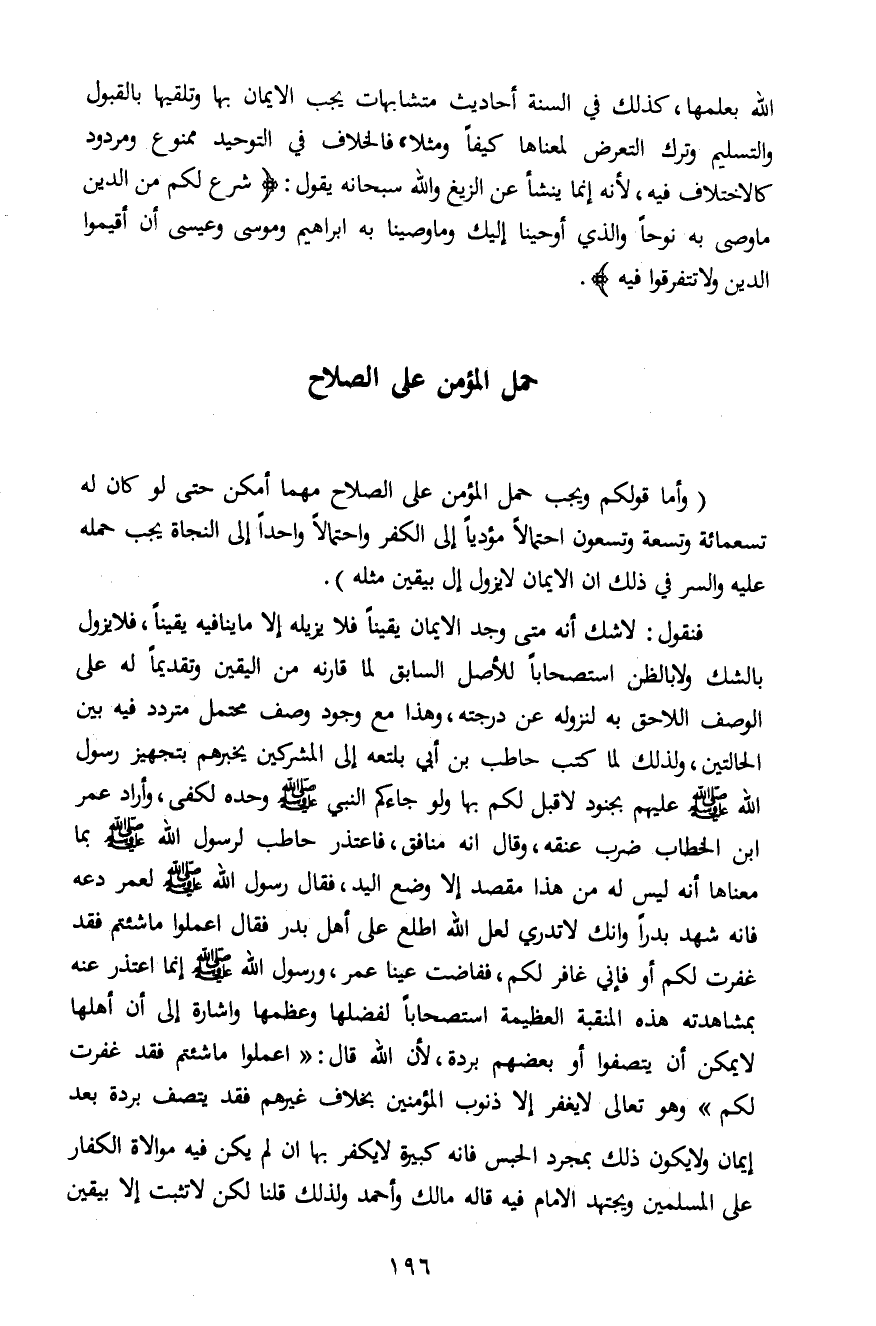 الله بعلمها، كذلك في السنة أحاديث متشابهات يجب الايمان بها وتلقيها بالقبول
والتسليم وترك التعرض لمعناها كيفاً ومثلا، فالخلاف في التوحيد ممنوع ومردود
كالاختلاف فيه، لأنه إنما ينشأ عن الزيغ والله سبحانه يقول: ﴿ شرع لكم من الدين
ماوصى به نوحاً والذي أوحينا إليك وماوصينا به ابراهيم وموسى وعيسى أن أقيموا
الدين ولاتتفرقوا فيه ﴾ .
حمل المؤمن على الصلاح
( وأما قولكم ويجب حمل المؤمن على الصلاح مهما أمكن حتى لو كان له
تسعمائة وتسعة وتسعون احتمالاً مؤدياً إلى الكفر واحتمالاً واحداً إلى النجاة يجب حمله
عليه والسر في ذلك ان الايمان لايزول إل بيقين مثله ) .
فنقول: لاشك أنه متى وجد الايمان يقيناً فلا يزيله إلا ماينافيه يقيناً، فلايزول
بالشك ولابالظن استصحاباً للأصل السابق لما قارنه من اليقين وتقديماً له على
الوصف اللاحق به لنزوله عن درجته، وهذا مع وجود وصف محتمل متردد فيه بين
الحالتين، ولذلك لما كتب حاطب بن أبي بلتعه إلى المشركين يخبرهم بتجهيز رسول
الله ﷺ عليهم بجنود لاقبل لكم بها ولو جاءكم النبي ﷺ وحده لكفى، وأراد عمر
ابن الخطاب ضرب عنقه، وقال انه منافق، فاعتذر حاطب لرسول الله ﷺ بما
معناها أنه ليس له من هذا مقصد إلا وضع اليد، فقال رسول الله ﷺ لعمر دعه
فانه شهد بدراً وانك لاتدري لعل الله اطلع على أهل بدر فقال اعملوا ماشئتم فقد
غفرت لكم أو فإني غافر لكم، ففاضت عينا عمر، ورسول الله ﷺ إنما اعتذر عنه
بمشاهدته هذه المنقبة العظيمة استصحاباً لفضلها وعظمها واشارة إلى أن أهلها
لايمكن أن يتصفوا أو بعضهم بردة، لأن الله قال: « اعملوا ماشئتم فقد غفرت
لكم » وهو تعالى لايغفر إلا ذنوب المؤمنين بخلاف غيرهم فقد يتصف بردة بعد
إيمان ولايكون ذلك بمجرد الحبس فانه كبيرة لايكفر بها ان لم يكن فيه موالاة الكفار
على المسلمين ويجتهد الامام فيه قاله مالك وأحمد ولذلك قلنا لكن لاتثبت إلا بيقين
١٩٦